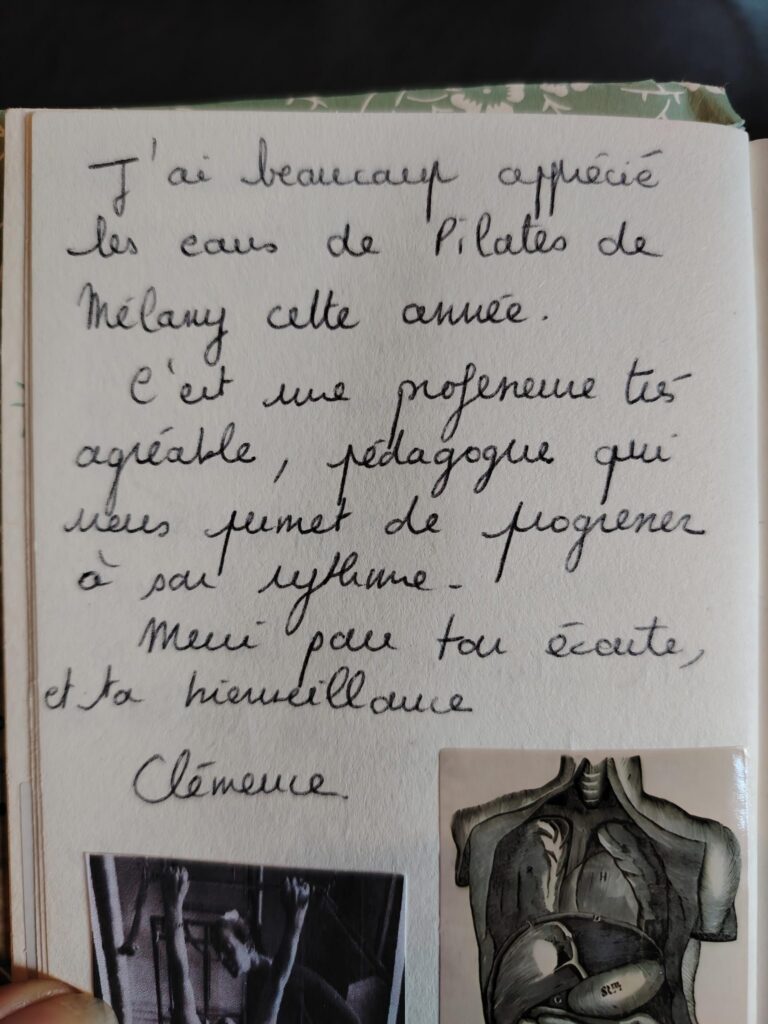 J'ai beaucoup apprécié
les cours de Pilates de
Mélany cette année.
C'est une professeure très
agréable, pédagogue qui
nous permet de progresser
à son rythme.
Merci pour ton écoute,
et ta bienveillance
Clémence.
H
St.m
G